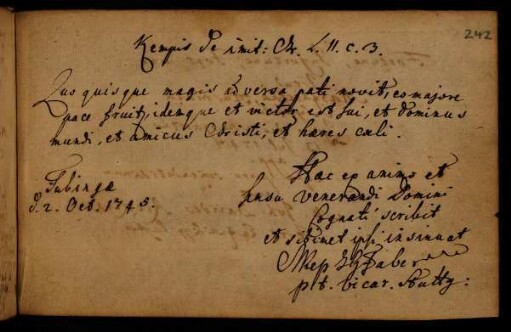 242
Kempis de imit: Chr. L. II. c. 3.
Quo quisque magis adversa pati novit, eo majore
pace fruit, idemque et victor est sui, et dominus
mundi, et amicus Christi, et hæres cœli.
Tubingæ
d. 2. Oct. 1745.
Hac ex animo et
sensu venerandi Domini
Cognati scribit
et sibimet ipsi insinuat
M Faber
p. t. vicar. Stuttg: